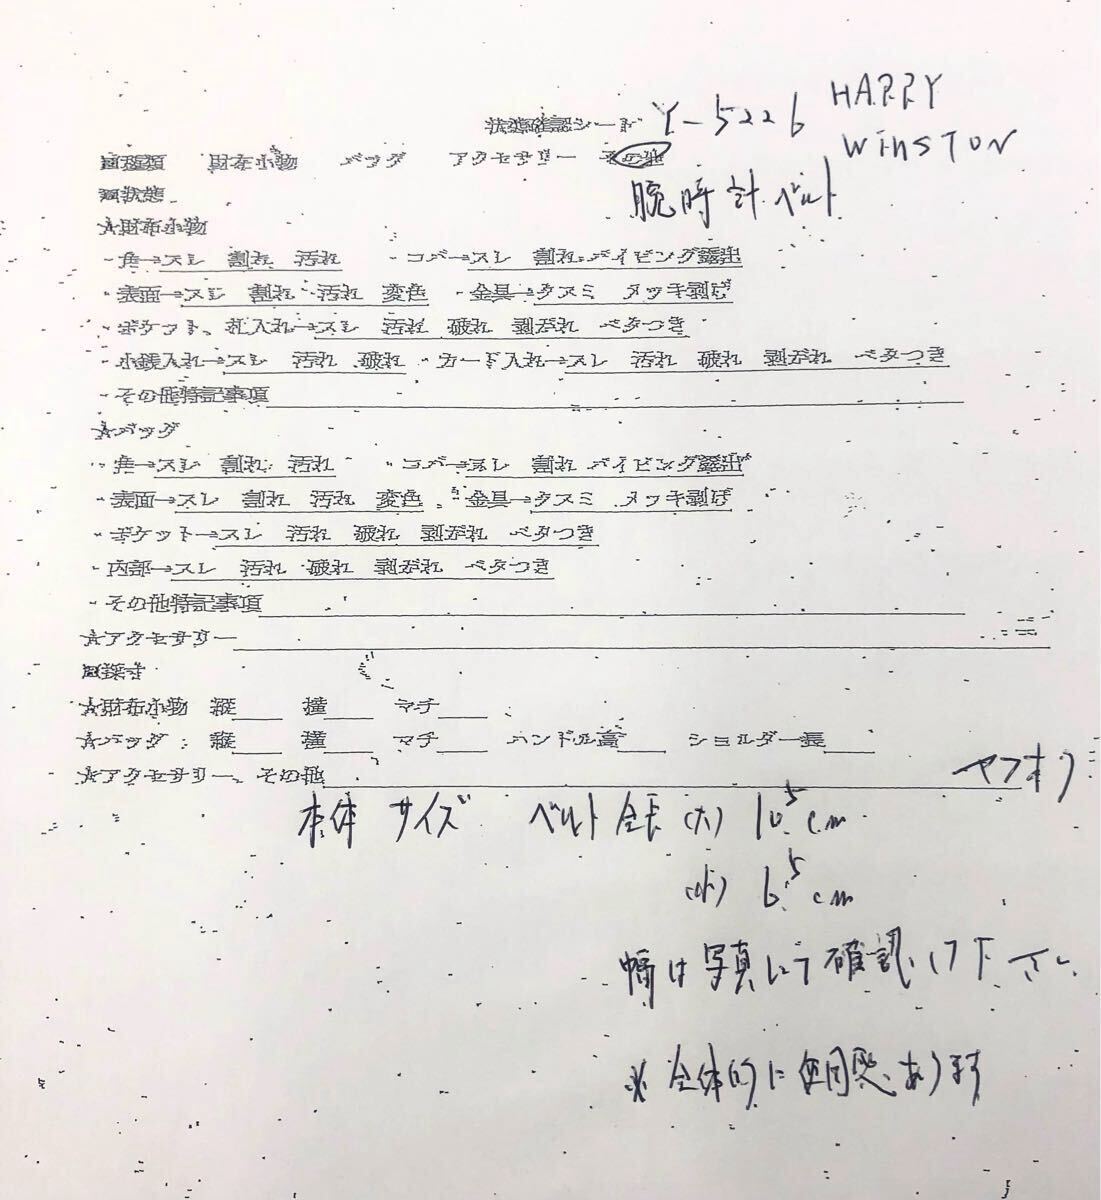 状態確認シート Y-5226 HARRY
WINSTON
■種類 財布小物 バッグ アクセサリー その他
腕時計ベルト
■状態
☆財布小物
・角→スレ 割れ 汚れ ・コバ→スレ 割れ パイピング露出
・表面→スレ 割れ 汚れ 変色 ・金具→クスミ メッキ剥げ
・ポケット、札入れ→スレ 汚れ 破れ 剥がれ ベタつき
・小銭入れ→スレ 汚れ 破れ ・カード入れ→スレ 汚れ 破れ 剥がれ ベタつき
・その他特記事項
☆バッグ
・角→スレ 割れ 汚れ ・コバ→スレ 割れ パイピング露出
・表面→スレ 割れ 汚れ 変色 ・金具→クスミ メッキ剥げ
・ポケット→スレ 汚れ 破れ 剥がれ ベタつき
・内部→スレ 汚れ 破れ 剥がれ ベタつき
・その他特記事項
☆アクセサリー
■採寸
☆財布小物 縦 横 マチ
☆バッグ 縦 横 マチ ハンドル高 ショルダー長
☆アクセサリー、その他
ヤフオク
本体サイズ ベルト全長 (大) 10.5cm
(小) 6.5cm
幅は写真にて確認して下さい
※全体的に使用感あります